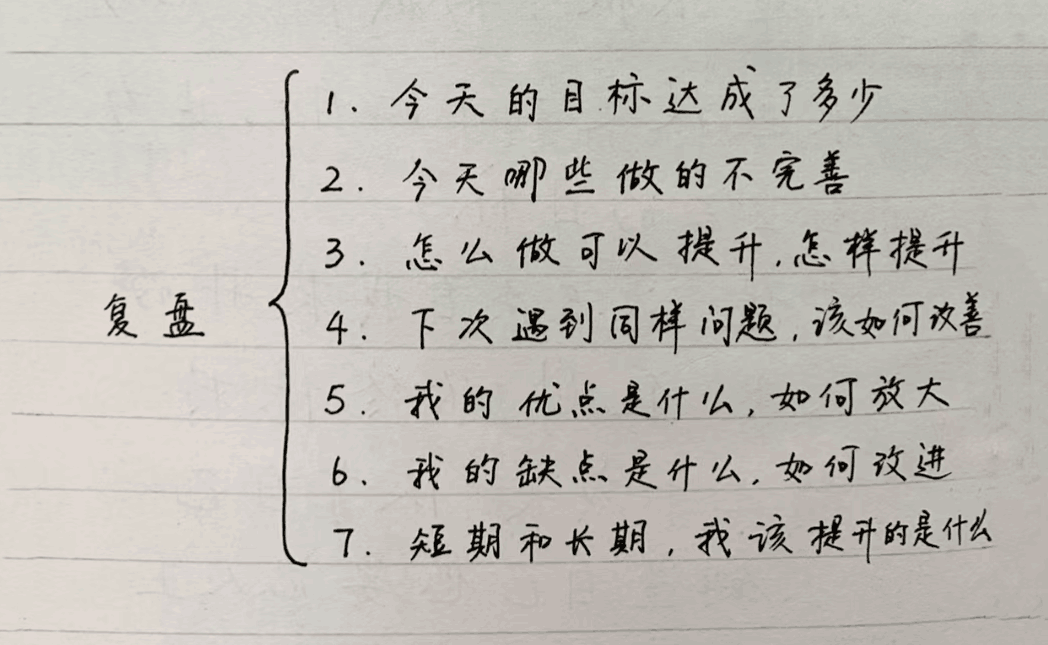 复盘
1. 今天的目标达成了多少
2. 今天哪些做的不完善
3. 怎么做可以提升,怎样提升
4. 下次遇到同样问题,该如何改善
5. 我的优点是什么,如何放大
6. 我的缺点是什么,如何改进
7. 短期和长期,我该提升的是什么